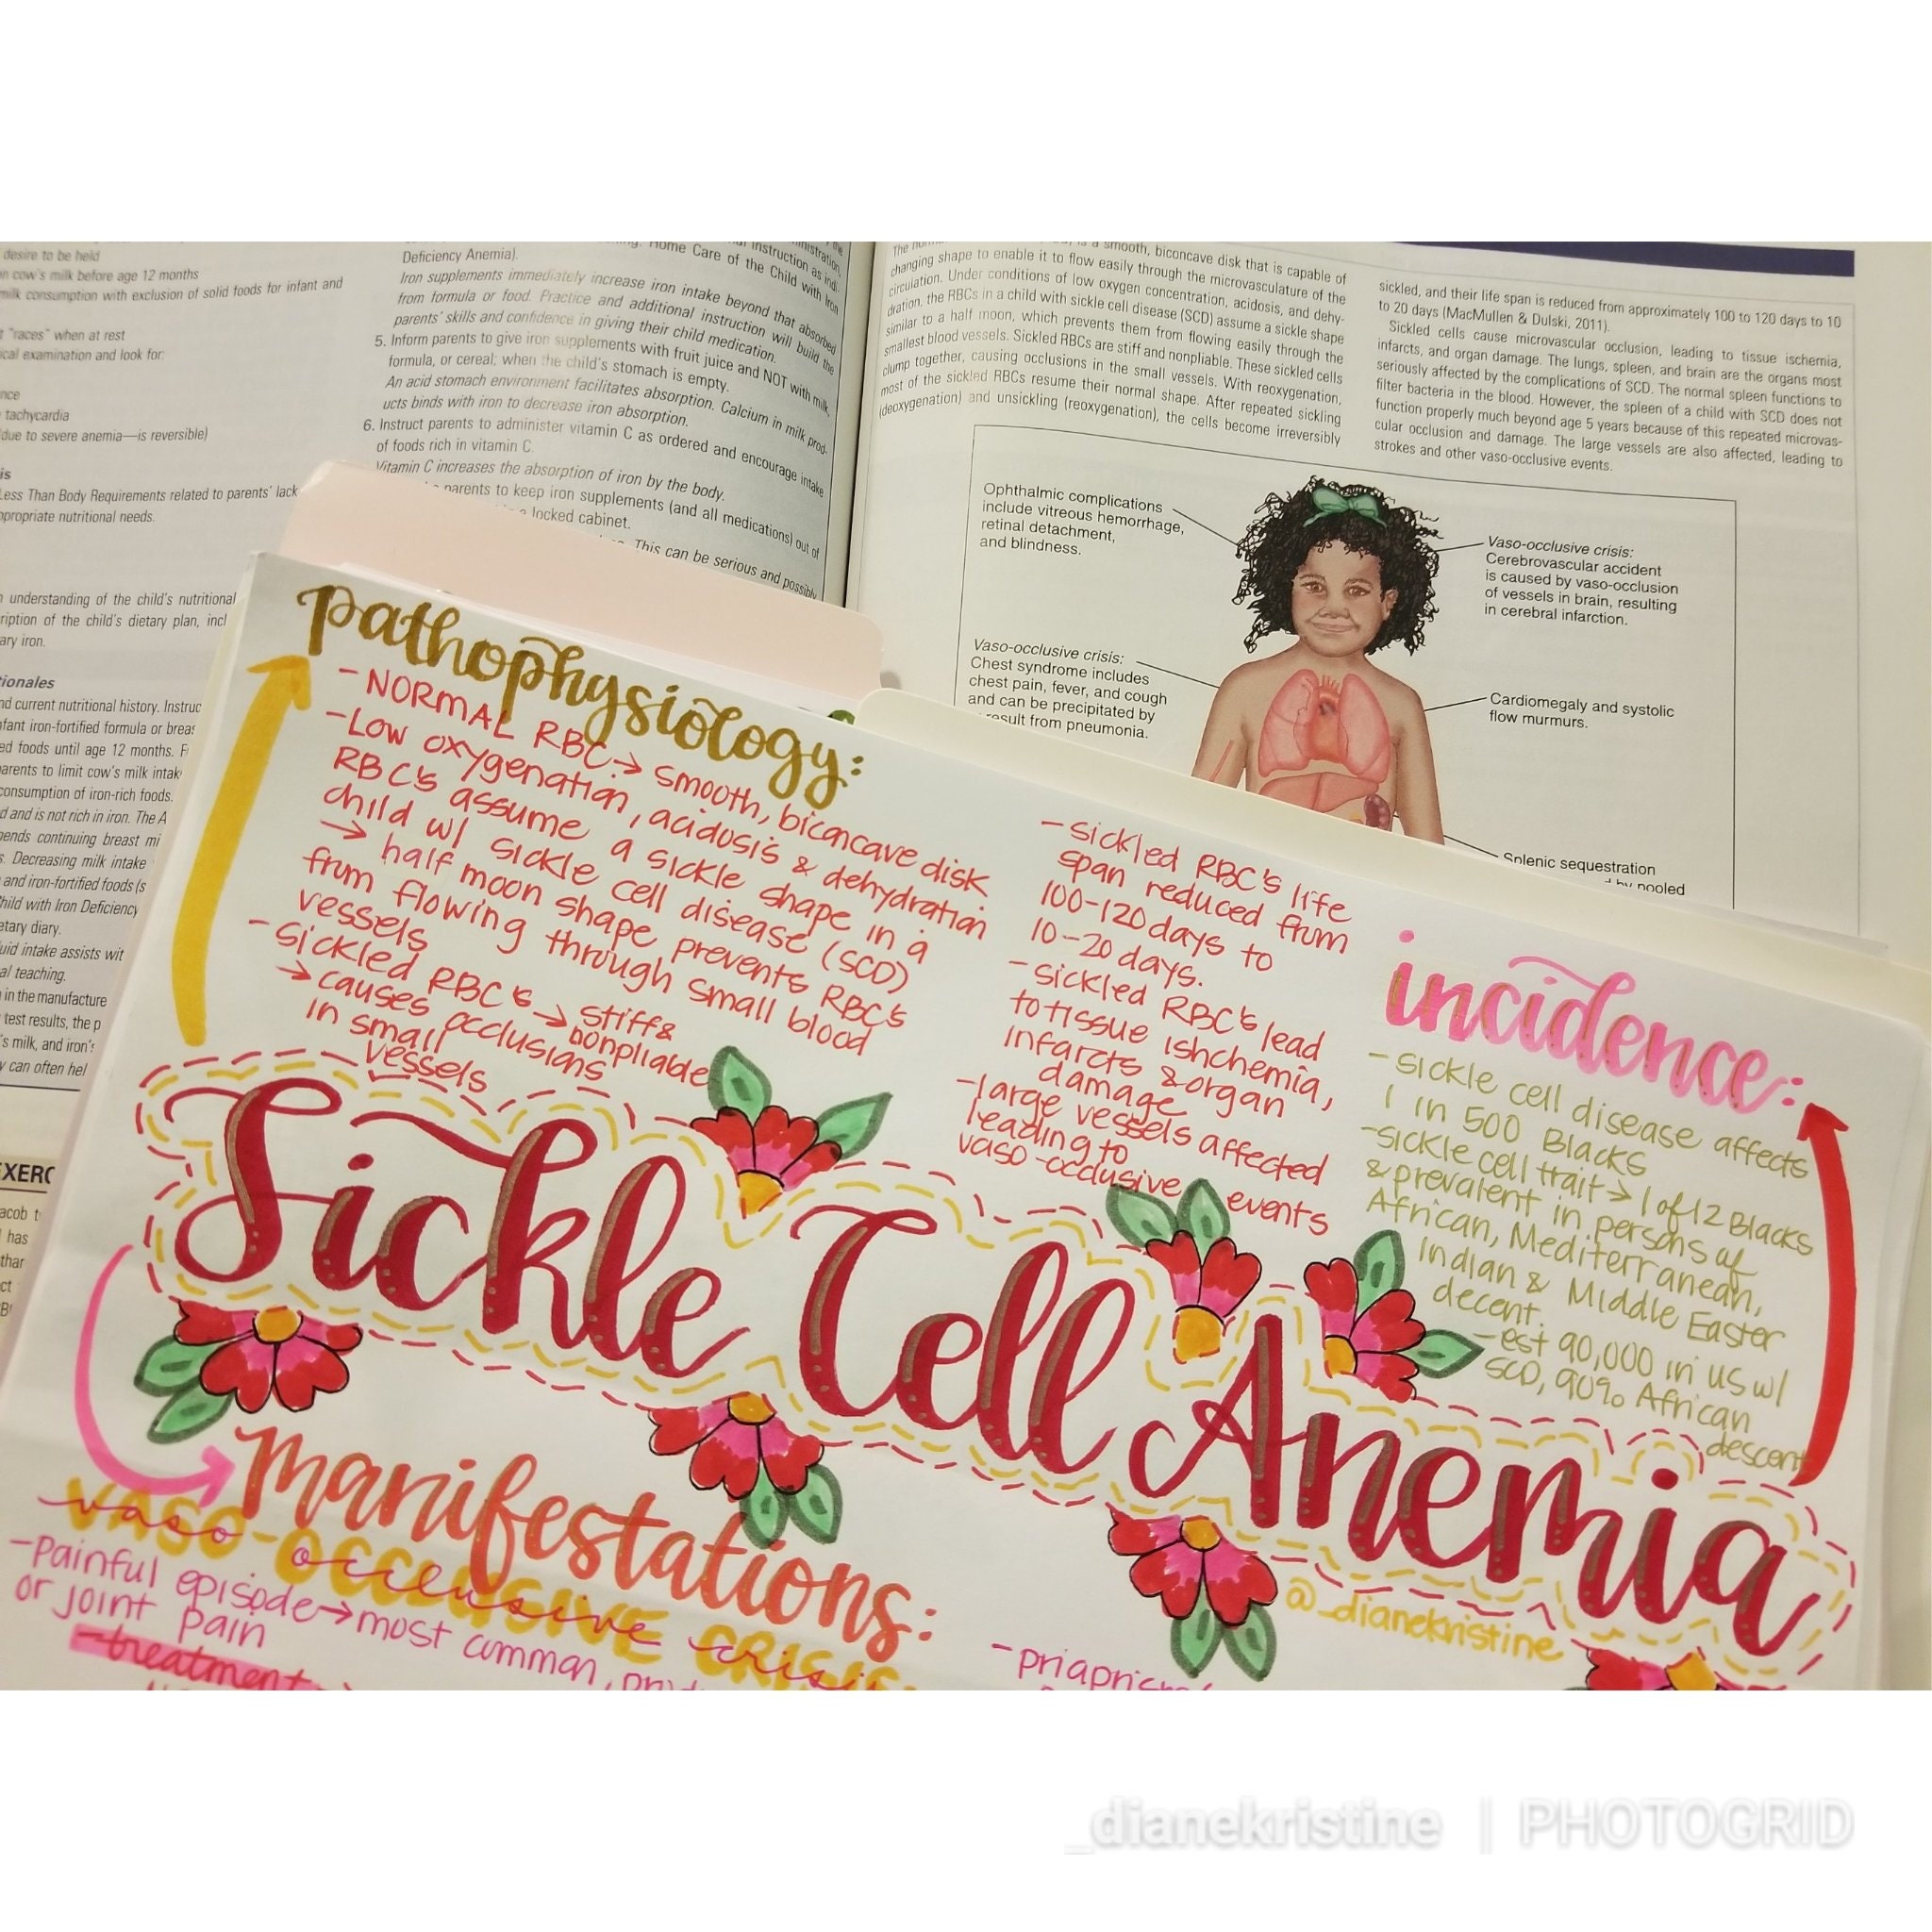 desire to be held
cow's milk before age 12 months
milk consumption with exclusion of solid foods for infant and
"races" when at rest
ical examination and look for:
tachycardia
(due to severe anemia—is reversible)
Less Than Body Requirements related to parents' lack
appropriate nutritional needs.
understanding of the child's nutritional
ription of the child's dietary plan, incl
ary iron.
tionales
nd current nutritional history. Instruc
nfant iron-fortified formula or breas
ed foods until age 12 months.
arents to limit cow's milk intak
consumption of iron-rich foods.
d and is not rich in iron. The A
ends continuing breast mi
s. Decreasing milk intake
and iron-fortified foods (s
hild with Iron Deficiency
etary diary.
uid intake assists wit
al teaching.
in the manufacture
test results, the p
's milk, and iron's
y can often hel
EXERC
acob t
has
thar
Deficiency Anemia).
Home Care of the Child with Iron
Iron supplements immediately increase iron intake beyond that absorbed
from formula or food. Practice and additional instruction will build the
parents' skills and confidence in giving their child medication.
5. Inform parents to give iron supplements with fruit juice and NOT with milk,
formula, or cereal; when the child's stomach is empty.
An acid stomach environment facilitates absorption. Calcium in milk prod-
ucts binds with iron to decrease iron absorption.
6. Instruct parents to administer vitamin C as ordered and encourage intake
of foods rich in vitamin C.
Vitamin C increases the absorption of iron by the body.
parents to keep iron supplements (and all medications) out of
locked cabinet.
This can be serious and possibly
is a smooth, biconcave disk that is capable of
changing shape to enable it to flow easily through the microvasculature of the
circulation. Under conditions of low oxygen concentration, acidosis, and dehy-
dration, the RBCs in a child with sickle cell disease (SCD) assume a sickle shape
similar to a half moon, which prevents them from flowing easily through the
smallest blood vessels. Sickled RBCs are stiff and nonpliable. These sickled cells
clump together, causing occlusions in the small vessels. With reoxygenation,
most of the sickled RBCs resume their normal shape. After repeated sickling
(deoxygenation) and unsickling (reoxygenation), the cells become irreversibly
sickled, and their life span is reduced from approximately 100 to 120 days to 10
to 20 days (MacMullen & Dulski, 2011).
Sickled cells cause microvascular occlusion, leading to tissue ischemia,
infarcts, and organ damage. The lungs, spleen, and brain are the organs most
seriously affected by the complications of SCD. The normal spleen functions to
filter bacteria in the blood. However, the spleen of a child with SCD does not
function properly much beyond age 5 years because of this repeated microvas-
cular occlusion and damage. The large vessels are also affected, leading to
strokes and other vaso-occlusive events.
Ophthalmic complications
include vitreous hemorrhage,
retinal detachment,
and blindness.
Vaso-occlusive crisis:
Cerebrovascular accident
is caused by vaso-occlusion
of vessels in brain, resulting
in cerebral infarction.
Vaso-occlusive crisis:
Chest syndrome includes
chest pain, fever, and cough
and can be precipitated by
result from pneumonia.
Cardiomegaly and systolic
flow murmurs.
Splenic sequestration
by pooled
pathophysiology:
- NORMAL RBC → smooth, biconcave disk
- Low oxygenation, acidosis & dehydration
RBC's assume a sickle shape in a
child w/ sickle cell disease (SCD)
→ half moon shape prevents RBC's
from flowing through small blood
vessels
- sickled RBC's → stiff &
nonpliable
→ causes occlusions
in small
vessels
- sickled RBC's life
span reduced from
100-120 days to
10-20 days.
- sickled RBC's lead
to tissue ishchemia,
infarcts & organ
damage
- large vessels affected
leading to
vaso-occlusive events
incidence:
- sickle cell disease affects
1 in 500 Blacks
- sickle cell trait → 1 of 12 Blacks
& prevalent in persons of
African, Mediterranean,
Indian & Middle Easter
decent.
- est 90,000 in US w/
SCD, 90% African
descent
Sickle Cell Anemia
@_dianekristine
manifestations:
VASO-OCCLUSIVE CRISIS
vaso occlusive crisis
- painful episode → most common,
or joint pain
- treatment
- priapris
_dianekristine | PHOTOGRID